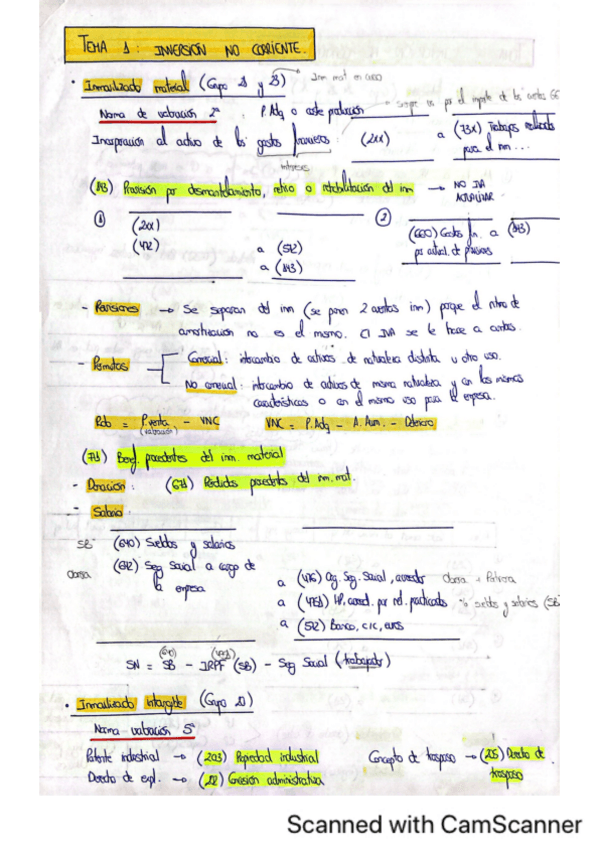 TEMA 1: INVERSIÓN NO CORRIENTE.
· Inmovilizado material (Grupo 21 y 23) → Inm mat en curso
Norma de valoración 2ª : P. Adq o coste producción → siempre es por el importe de los costes
Incorporación al activo de los gastos financieros : (2xx) a (73x) Trabajos realizados
intereses
para el inm...
(143) Provisión por desmantelamiento, retiro o rehabilitación del inm → NO IVA
ACTUALIZAR
① (2xx)
(472) a (572)
a (143)
② (660) Gastos fin. a (143)
por actual. de provisiones
- → Se separan del inm (se ponen 2 cuentas inm) porque el ritmo de
amortización no es el mismo. El IVA se le hace a ambos.
- Permutas
Comercial: intercambio de activos de naturaleza distinta u otro uso.
No comercial: intercambio de activos de misma naturaleza y con las mismas
características o con el mismo uso para la empresa.
Rdo = P. venta - VNC VNC = P. Adq - A. Acum. - Deterioro
(valoración)
(771) Benf. procedentes del inm. material
- Donación: (671) Pérdidas procedentes del inm. mat.
- Salario:
SB (640) Sueldos y salarios
(642) Seg Social a cargo de
la empresa
a (476) Og. Seg. Social, acreedor Obrera + Patronal
a (4751) HP. acreed. por ret. practicadas % sueldos y salarios (SB
a (572) Banco, c/c, euros
(640) (4751)
SN = SB - IRPF (SB) - Seg Social (trabajador)
· Inmovilizado intangible (Grupo 20)
Norma valoración 5ª
Patente industrial → (203) Propiedad industrial
Concepto de traspaso → (205) Derecho de
traspaso
Derecho de expl. → (202) Concesión administrativa
Scanned with CamScanner